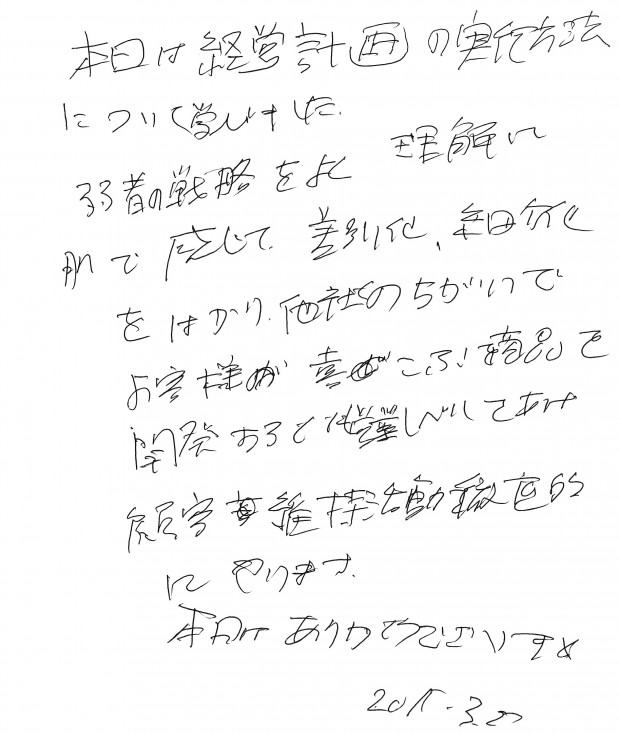 本日は経営計画の実行方法
について学びました.
弱者の戦略をよく 理解い
肌で 感じて. 差別化、細分化
をはかり. 他社のちがいで
お客様が 喜び 商品を
開発すると してあげ
顧客 維持活動徹底的
に やります.
本日は ありがとうございます
2015.3.